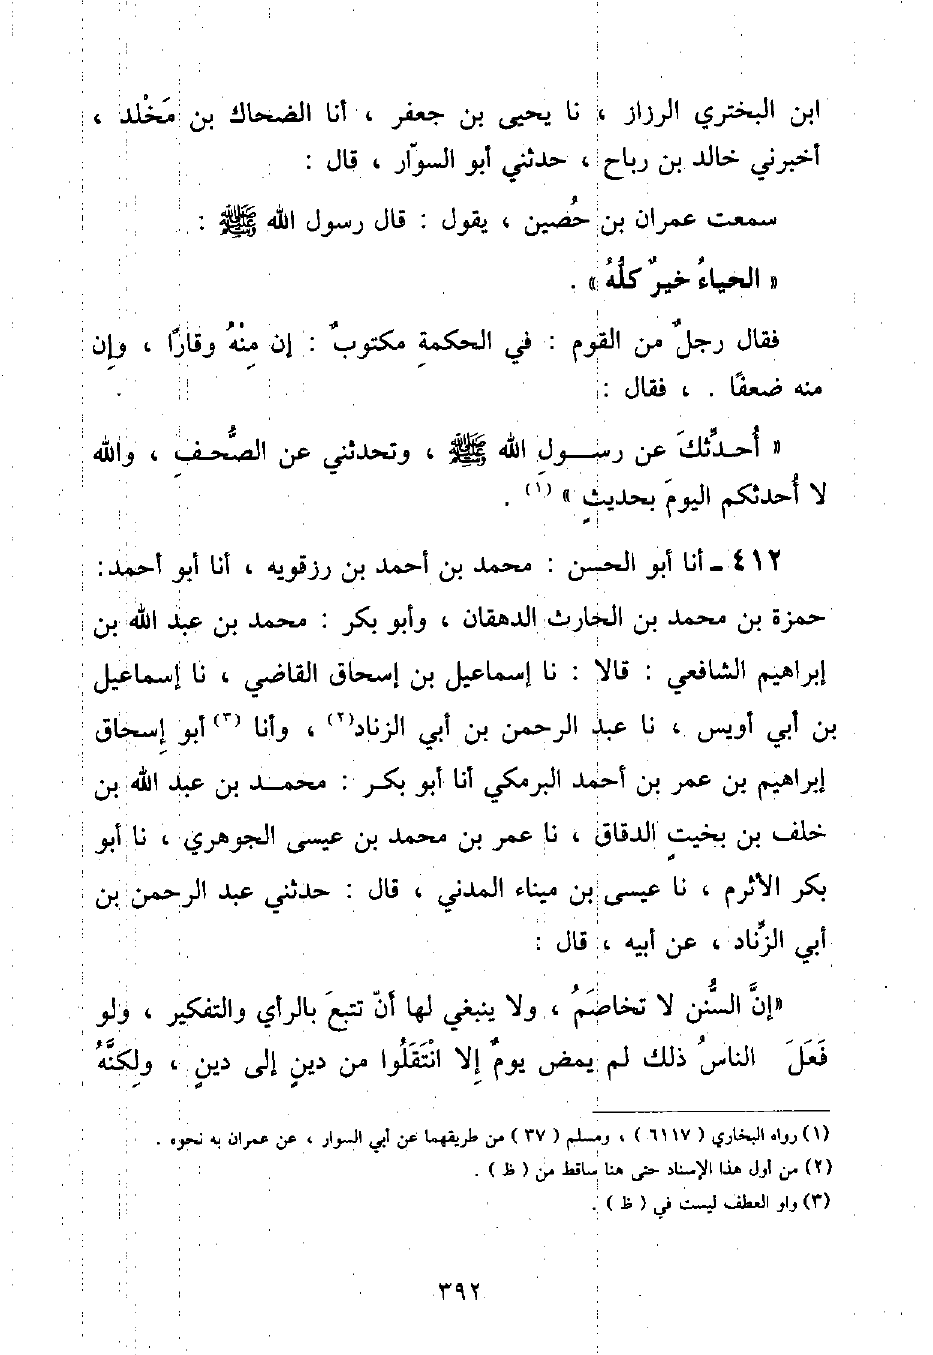 ابن البختري الرزاز ، نا يحيى بن جعفر ، أنا الضحاك بن مَخْلد ،
أخبرني خالد بن رباح ، حدثني أبو السوّار ، قال :
سمعت عمران بن حُصين ، يقول : قال رسول الله ﷺ :
« الحياءُ خيرٌ كلُّهُ » .
فقال رجلٌ من القوم : في الحكمةِ مكتوبٌ : إن مِنْهُ وقارًا ، وإِن
منه ضعفًا . ، فقال :
« أُحدِّثكَ عن رسولِ الله ﷺ ، وتحدثني عن الصُّحفِ ، والله
لا أُحدثكم اليومَ بحديثٍ » (١) .
٤١٢ ـ أنا أبو الحسن : محمد بن أحمد بن رزقويه ، أنا أبو أحمد :
حمزة بن محمد بن الحارث الدهقان ، وأبو بكر : محمد بن عبد الله بن
إبراهيم الشافعي : قالا : نا إسماعيل بن إسحاق القاضي ، نا إسماعيل
بن أبي أويس ، نا عبد الرحمن بن أبي الزناد(٢) ، وأنا (٣) أبو إسحاق
إبراهيم بن عمر بن أحمد البرمكي أنا أبو بكر : محمد بن عبد الله بن
خلف بن بخيتٍ الدقاق ، نا عمر بن محمد بن عيسى الجوهري ، نا أبو
بكر الأثرم ، نا عيسى بن ميناء المدني ، قال : حدثني عبد الرحمن بن
أبي الزِّناد ، عن أبيه ، قال :
«إنَّ السُّنن لا تخاصَمُ ، ولا ينبغي لها أنّ تتبعَ بالرأي والتفكير ، ولو
فَعَلَ الناسُ ذلك لم يمض يومٌ إلا انْتَقَلُوا من دينٍ إلى دينٍ ، ولكنَّهُ
(١) رواه البخاري ( ٦١١٧ ) ، ومسلم ( ٣٧ ) من طريقهما عن أبي السوار ، عن عمران به نحوه .
(٢) من أول هذا الإسناد حتى هنا ساقط من ( ظ ) .
(٣) واو العطف ليست في ( ظ ) .
٣٩٢